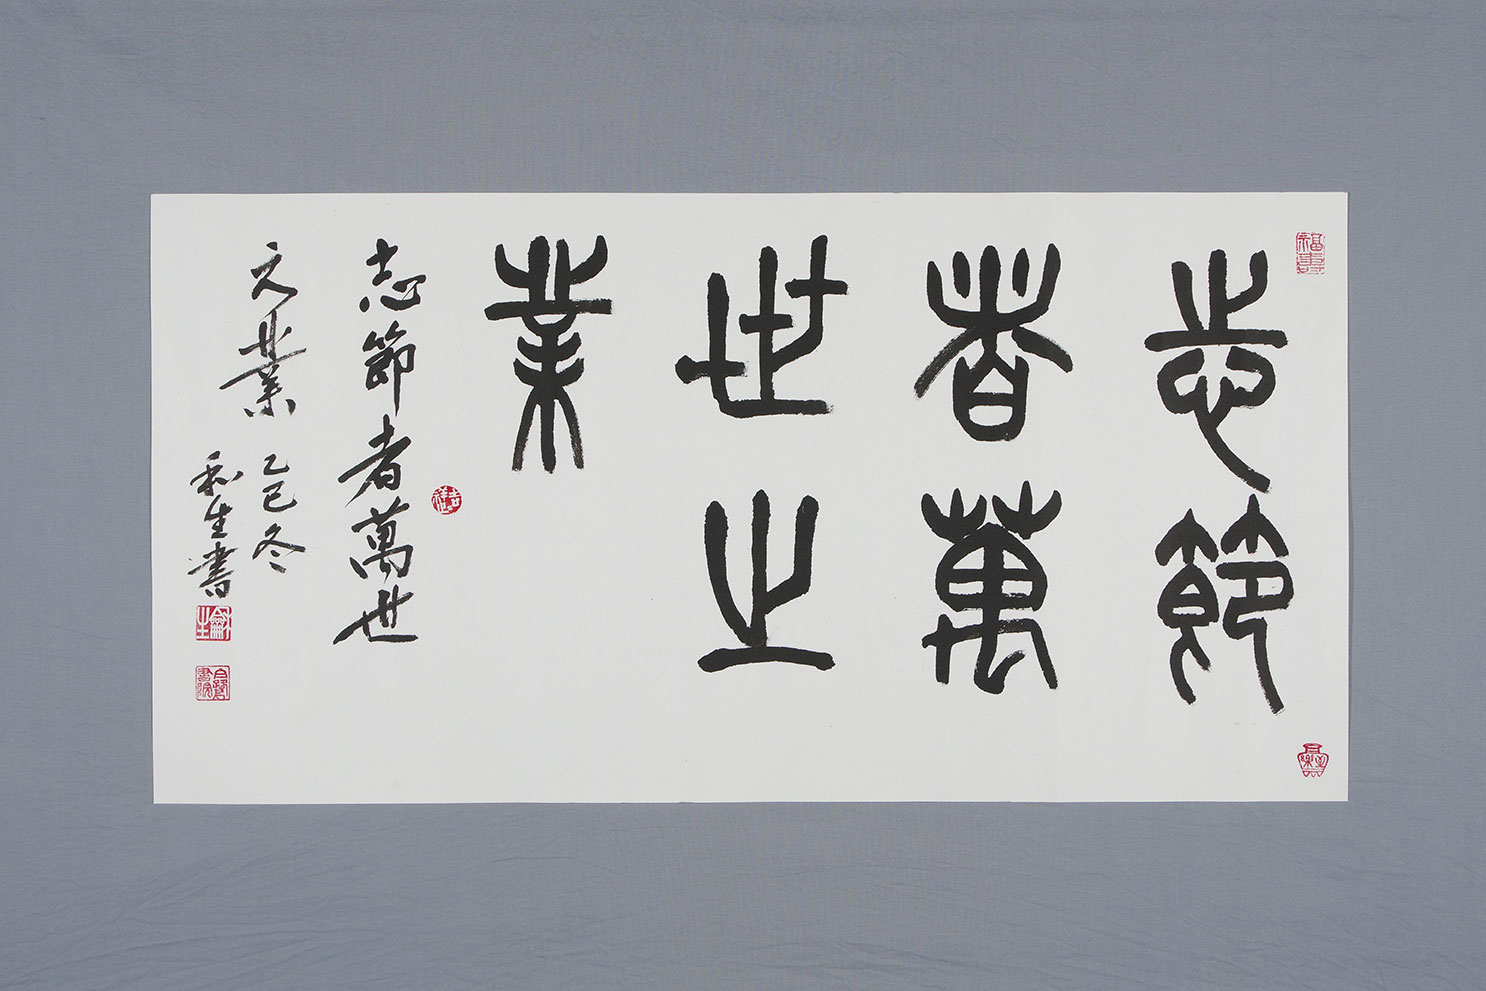 志節
者萬
世之
業
志節者萬世
之業
乙巳冬
和生書